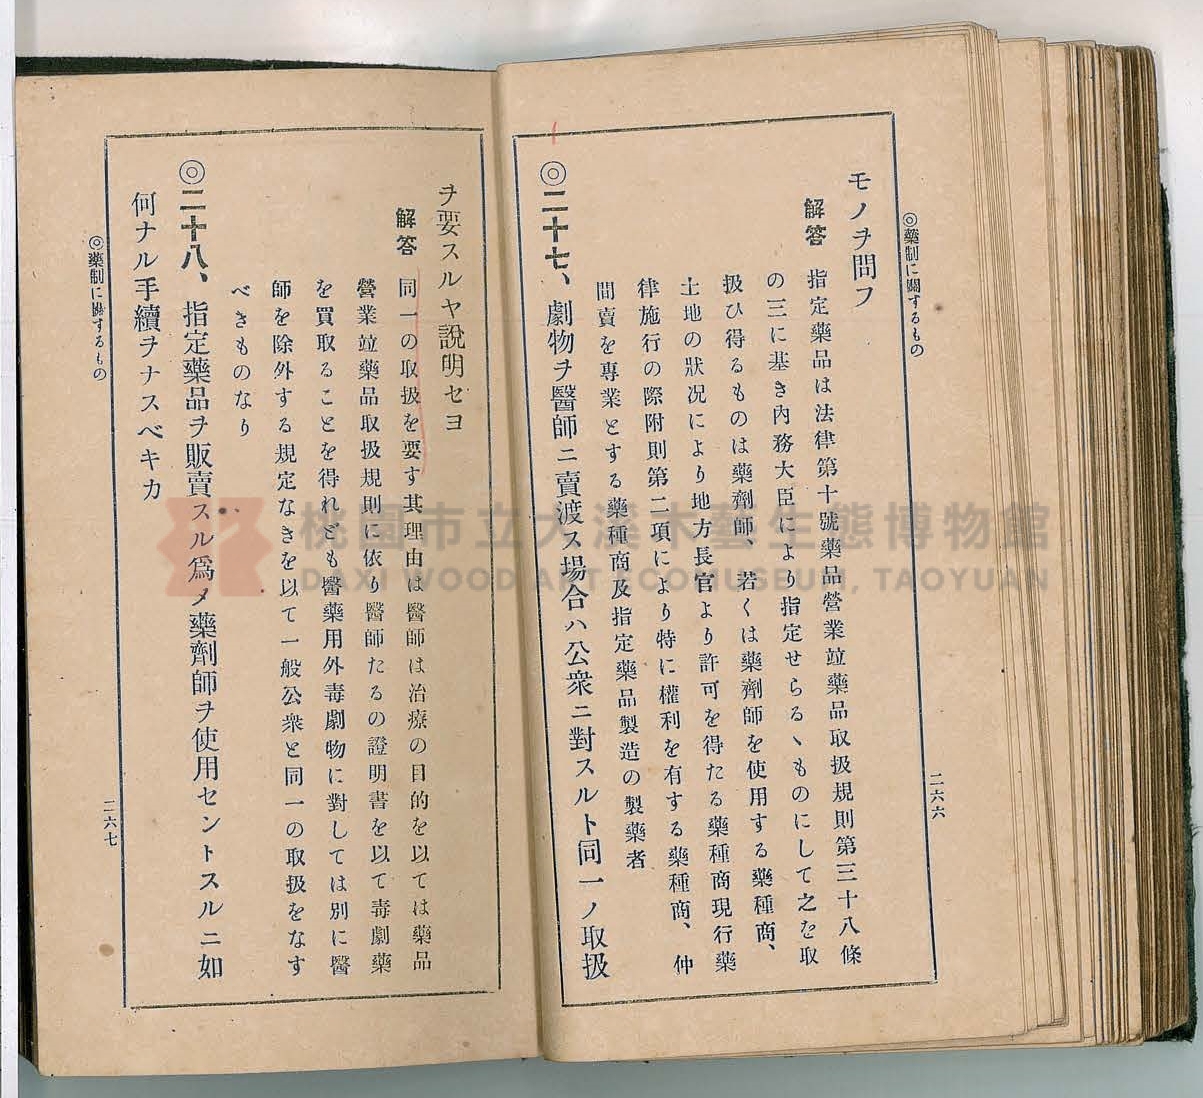 ◎藥制に關するもの
二六六
モノヲ問フ
解答 指定藥品は法律第十號藥品營業竝藥品取扱規則第三十八條
の三に基き內務大臣により指定せらるゝものにして之を取
扱ひ得るものは藥劑師、若くは藥劑師を使用する藥種商、
土地の狀況により地方長官より許可を得たる藥種商現行藥
律施行の際附則第二項により特に權利を有する藥種商、仲
間賣を專業とする藥種商及指定藥品製造の製藥者
◎二十七、劇物ヲ醫師ニ賣渡ス場合ハ公衆ニ對スルト同一ノ取扱
ヲ要スルヤ說明セヨ
解答 同一の取扱を要す其理由は醫師は治療の目的を以ては藥品
營業竝藥品取扱規則に依り醫師たるの證明書を以て毒劇藥
を買取ることを得れども醫藥用外毒劇物に對しては別に醫
師を除外する規定なきを以て一般公衆と同一の取扱をなす
べきものなり
◎二十八、指定藥品ヲ販賣スル爲メ藥劑師ヲ使用セントスルニ如
何ナル手續ヲナスベキカ
◎藥制に關するもの
二六七
桃園市立大溪木藝生態博物館
DAXI WOOD ART ECOMUSEUM, TAOYUAN